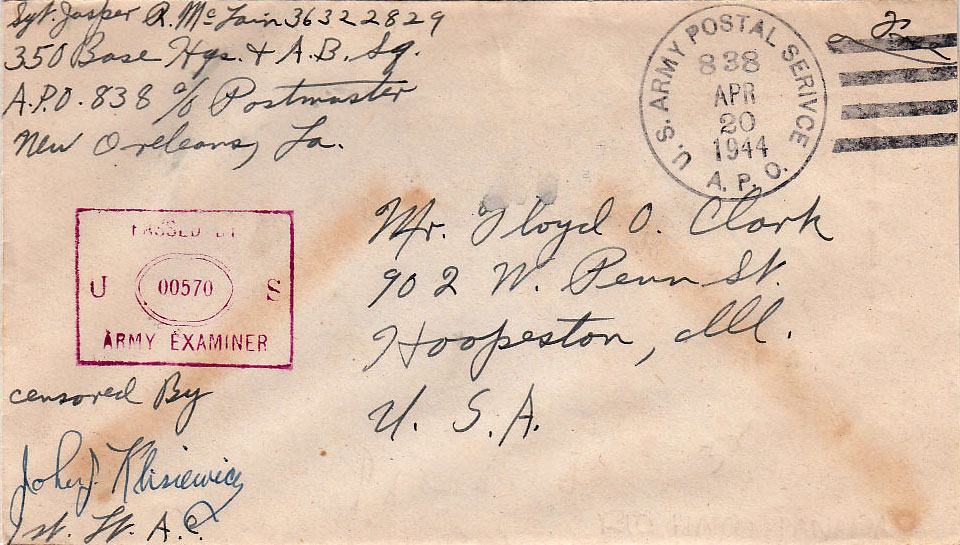 Sgt. Jasper R. McLain 36322829
350 Base Hqs. & A.B. Sq.
A.P.O. 838 c/o Postmaster
New Orleans, La.
U.S. ARMY POSTAL SERIVCE
838
APR
20
1944
A.P.O.
PASSED BY
U 00570 S
ARMY EXAMINER
Mr. Floyd O. Clark
902 W. Penn St.
Hoopeston, Ill.
U. S. A.
censored By
John J. Klisiewicz
1st. Lt. A.C.